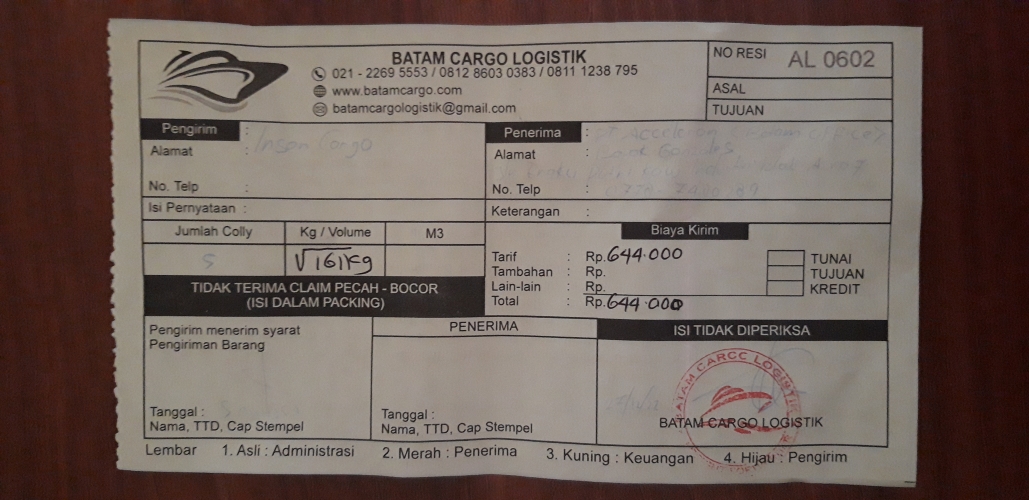 BATAM CARGO LOGISTIK
021 - 2269 5553 / 0812 8603 0383 / 0811 1238 795
www.batamcargo.com
batamcargologistik@gmail.com
NO RESI AL 0602
ASAL
TUJUAN
Pengirim : Insan Cargo
Alamat :
No. Telp :
Isi Pernyataan :
Penerima : PT.
Alamat :
No. Telp :
Keterangan :
Jumlah Colly Kg / Volume M3
5 √161Kg
TIDAK TERIMA CLAIM PECAH - BOCOR
(ISI DALAM PACKING)
Biaya Kirim
Tarif : Rp.644.000
Tambahan : Rp.
Lain-lain : Rp.
Total : Rp.644.000
TUNAI
TUJUAN
KREDIT
Pengirim menerim syarat
Pengiriman Barang
Tanggal :
Nama, TTD, Cap Stempel
PENERIMA
Tanggal :
Nama, TTD, Cap Stempel
ISI TIDAK DIPERIKSA
BATAM CARGO LOGISTIK
BATAM CARGO LOGISTIK
Lembar 1. Asli : Administrasi 2. Merah : Penerima 3. Kuning : Keuangan 4. Hijau : Pengirim